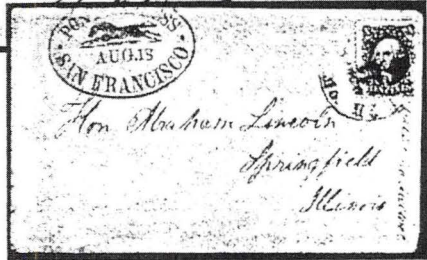 PONY EXPRESS
AUG.18
SAN FRANCISCO
Hon Abraham Lincoln
Springfield
Illinois